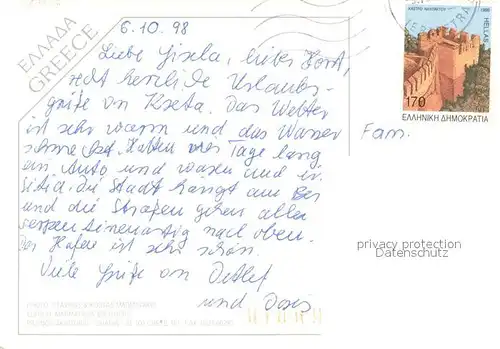 ΕΛΛΑΔΑ
GREECE
6.10.98
Liebe Gisela, lieber Horst,
recht herzliche Urlaubs-
grüße von Kreta. Das Wetter
ist sehr warm und das Wasser
Hatten vier Tage lang
ein Auto und waren und in
Sitia. Die Stadt hängt am Berg
und die Straßen gehen alle
nach oben.
Der Hafen ist sehr schön.
Viele Grüße von Detlef
und Doris
Fam.
1998
HELLAS
170
ΕΛΛΗΝΙΚΗ ΔΗΜΟΚΡΑΤΙΑ
privacy protection
Datenschutz